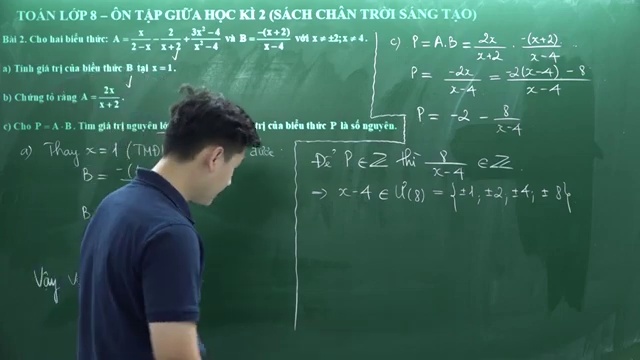 TOÁN LỚP 8 – ÔN TẬP GIỮA HỌC KÌ 2 (SÁCH CHÂN TRỜI SÁNG TẠO)
Bài 2. Cho hai biểu thức: A = x/(2−x) − 2/(x+2) + (3x²−4)/(x²−4) và B = −(x+2)/(x−4) với x ≠ ±2; x ≠ 4.
a) Tính giá trị của biểu thức B tại x = 1.
b) Chứng tỏ rằng A = 2x/(x+2).
c) Cho P = A · B. Tìm giá trị nguyên trị của biểu thức P là số nguyên.
a) Thay x = 1 (TMĐ được
B = −(
B
Vậy
c) P = A.B = 2x/(x+2) . −(x+2)/(x−4)
P = −2x/(x−4) = (−2(x−4) − 8)/(x−4)
P = −2 − 8/(x−4)
Để P ∈ ℤ thì 8/(x−4) ∈ ℤ.
→ x−4 ∈ Ư(8) = {±1; ±2; ±4; ±8}